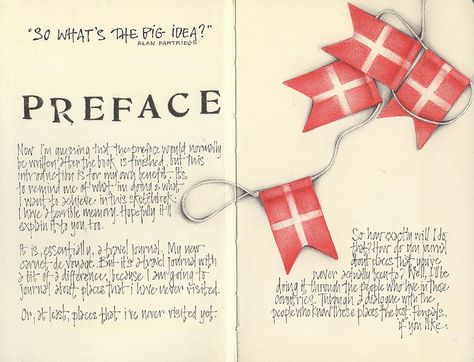 "SO WHAT'S THE BIG IDEA?"
ALAN PARTRIDGE
PREFACE
Now I'm guessing that the preface would normally
be written after the book is finished, but this
introduction is for my own benefit. It's
to remind me of what i'm doing & what
i want to achieve in this sketchbook.
I have a terrible memory. Hopefully it'll
explain it to you, too.
It is, essentially, a travel journal. My new
carnet de voyage. But it's a travel journal with
a bit of a difference, because I am going to
journal about places that i have never visited.
Or, at least, places that i've never visited yet.
So how exactly will I do
that? How do you journal
about places that you've
never actually been to? Well, I'll be
doing it through the people who live in these
countries. Through a dialogue with the
people who know these places the best. Penpals,
if you like.